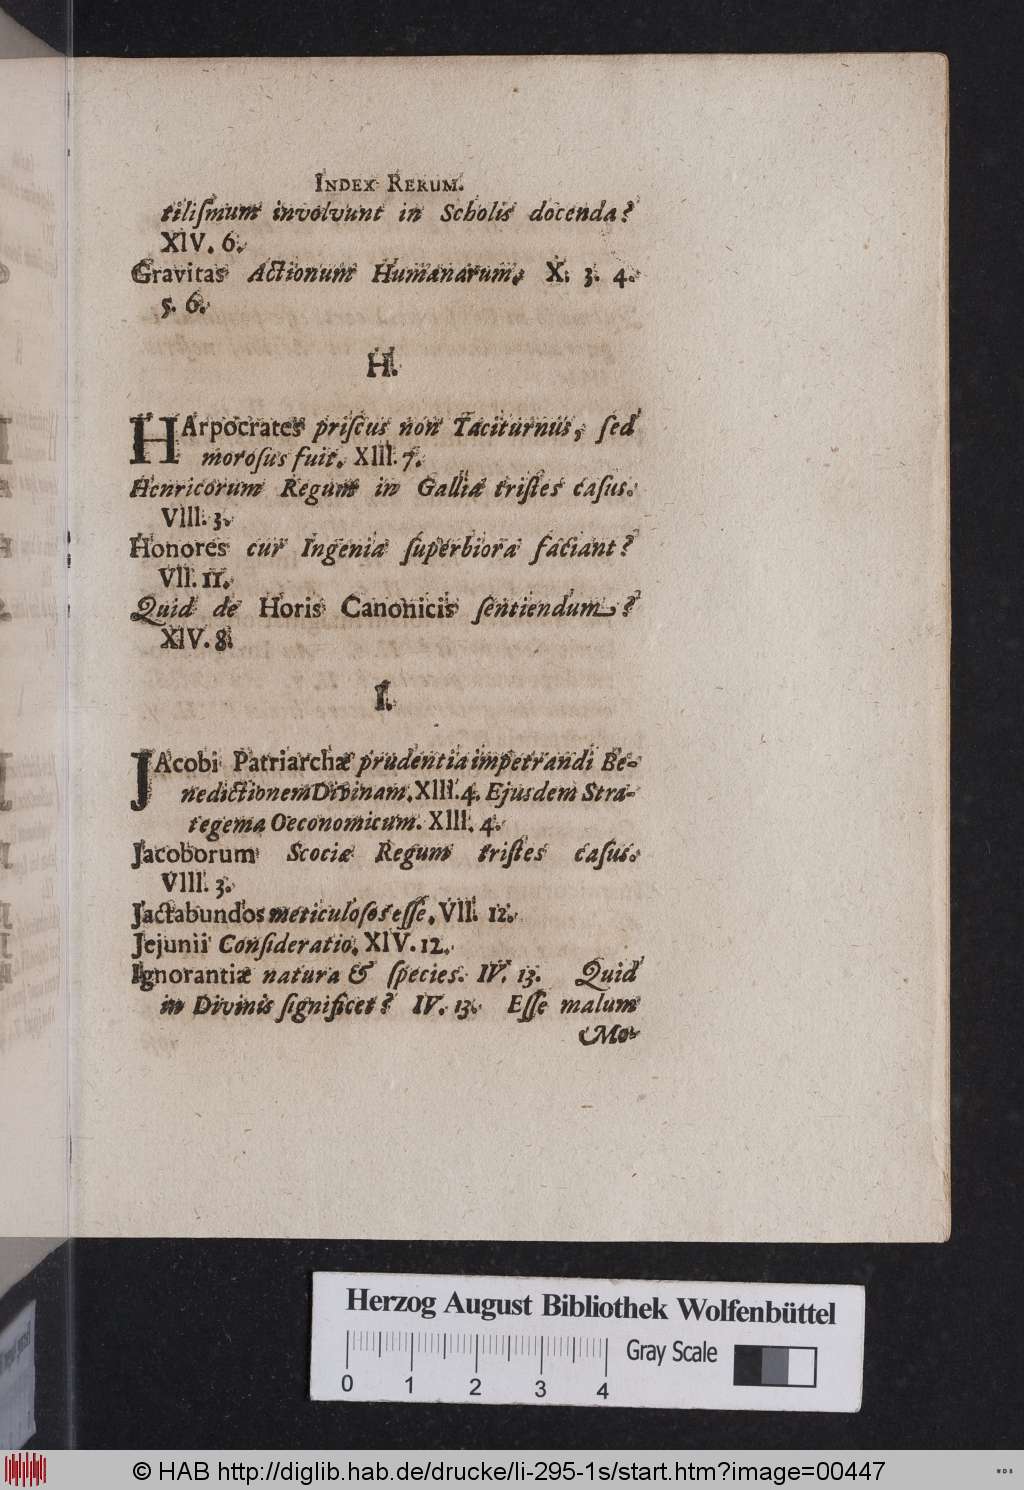 INDEX RERUM.
tiliſmum involvunt in Scholis docenda?
XIV. 6.
Gravitas Actionum Humanarum, X. 3. 4.
5. 6.
H.
HArpocrates priſcus non Taciturnus, ſed
moroſus fuit. XIII. 7.
Henricorum Regum in Galliæ triſtes caſus.
VIII. 3.
Honores cur Ingenia ſuperbiora faciant?
VII. 11.
Quid de Horis Canonicis ſentiendum?
XIV. 8.
I.
JAcobi Patriarchæ prudentia impetrandi Be-
nedictionem Divinam. XIII. 4. Ejusdem Stra-
tegema Oeconomicum. XIII. 4.
Jacoborum Scociæ Regum triſtes caſus.
VIII. 3.
Jactabundos meticuloſos eſſe. VII. 12.
Jejunii Conſideratio. XIV. 12.
Ignorantiæ natura & ſpecies. IV. 13. Quid
in Divinis ſignificet? IV. 13. Eſſe malum
Mo-
Herzog August Bibliothek Wolfenbüttel
Gray Scale
0 1 2 3 4
© HAB http://diglib.hab.de/drucke/li-295-1s/start.htm?image=00447